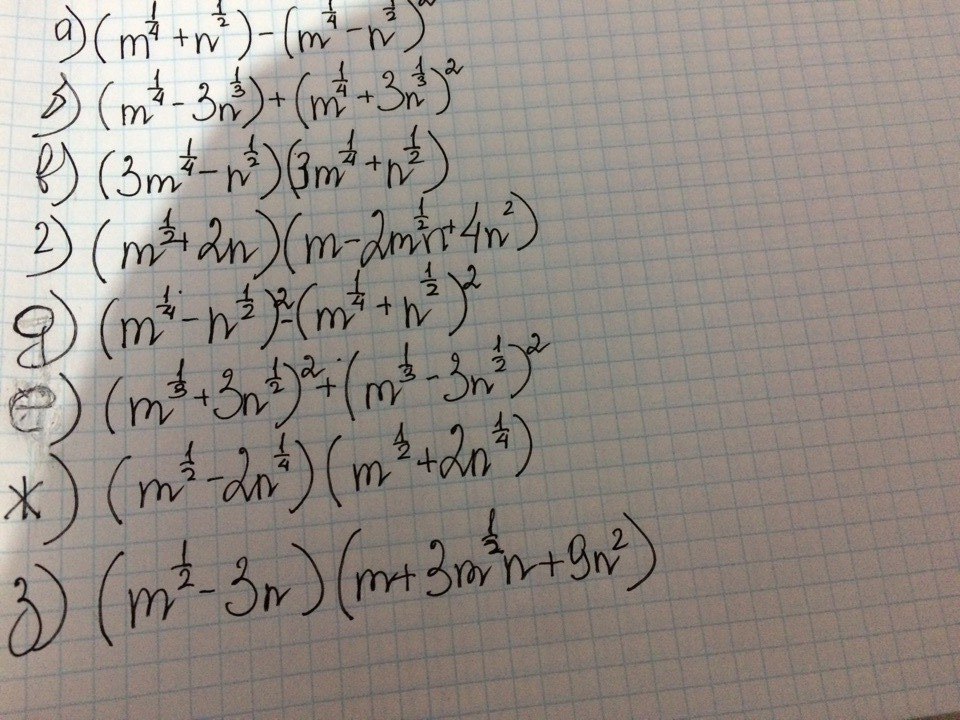 а) (m^{1/4} + n^{1/2}) - (m^{1/4} - n^{1/2})^2
б) (m^{1/4} - 3n^{1/3}) + (m^{1/4} + 3n^{1/3})^2
в) (3m^{1/4} - n^{1/2})(3m^{1/4} + n^{1/2})
г) (m^{1/2} + 2n)(m - 2m^{1/2}n + 4n^2)
д) (m^{1/4} - n^{1/2})^2 - (m^{1/4} + n^{1/2})^2
е) (m^{1/3} + 3n^{1/2})^2 + (m^{1/3} - 3n^{1/2})^2
ж) (m^{1/2} - 2n^{1/4})(m^{1/2} + 2n^{1/4})
з) (m^{1/2} - 3n)(m + 3m^{1/2}n + 9n^2)